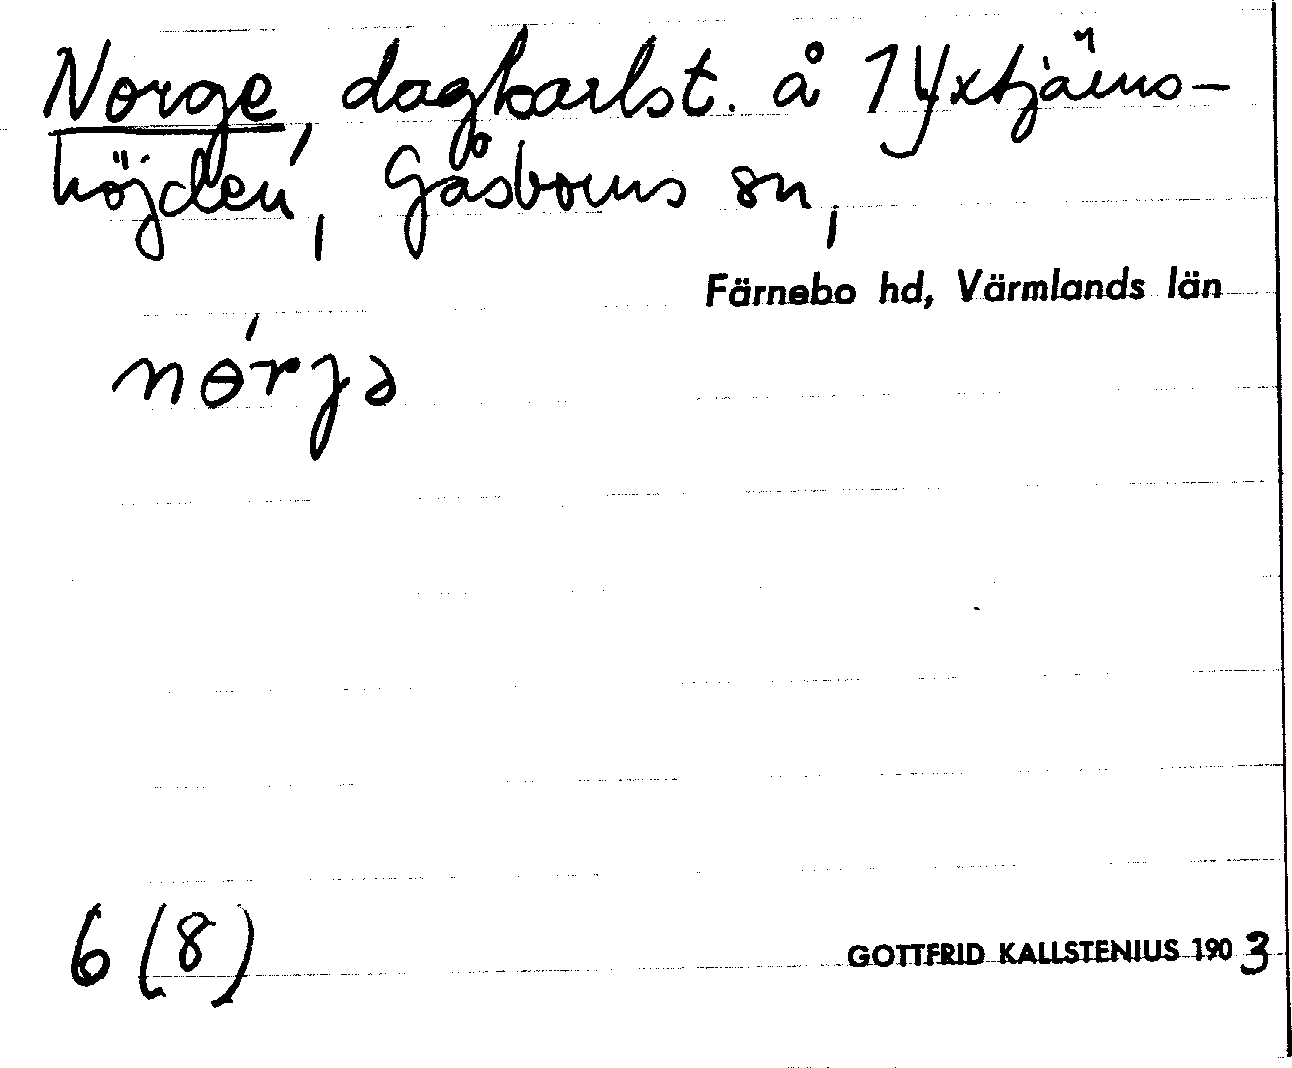 Norge, dagkarlst. å 1 Yxtjärns-
höjden, Gåsborns sn,
Färnebo hd, Värmlands län
nɵ́rjə
6 (8)
GOTTFRID KALLSTENIUS 1903